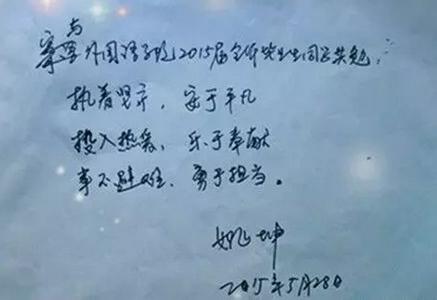 与
外国语学院2015届全体毕业生同学共勉：
执着坚守，安于平凡
投入热爱、乐于奉献
事不避难、勇于担当。
姚坤
2015年5月28日